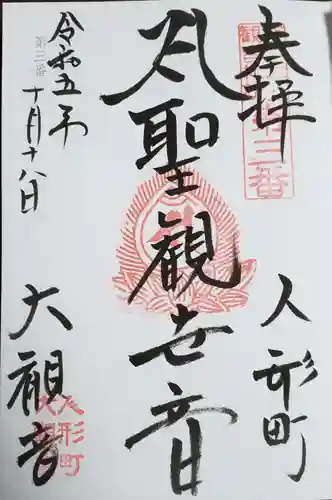 奉拝
人形町
聖観世音
令和五年
十月十八日
大観音
第三番
第三番
人形町